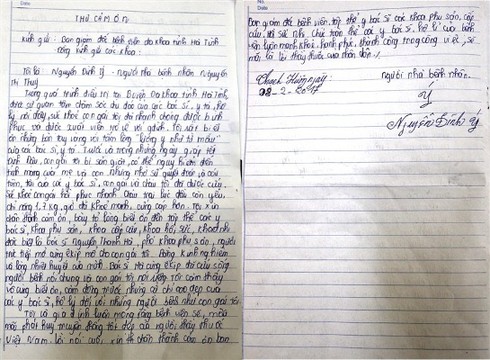 THƯ CẢM ƠN
Kính gửi: Ban giám đốc bệnh viện đa khoa tỉnh Hà Tĩnh
cùng kính gửi các khoa:
Tôi là: Nguyễn Đình Ý - người nhà bệnh nhân Nguyễn
Thị Thuý
Trong quá trình điều trị tại Bệnh viện Đa khoa tỉnh Hà Tĩnh,
được sự quan tâm chăm sóc chu đáo của các bác sĩ, y tá, hộ
lý nơi đây, sức khoẻ con gái tôi đã nhanh chóng được bình
phục và được xuất viện trở về với gia đình. Tôi rất biết
ơn những bàn tay vàng với tấm lòng "Lương y như từ mẫu"
của các bác sĩ, y tá. Trước và trong những ngày
con gái tôi bị sản giật, có thể nguy hiểm đến
tính mạng của mẹ và con nhưng nhờ sự quyết đoán và cứu
con gái và cháu tôi đã được cứu.
Sức khoẻ con gái hồi phục nhanh. Cháu trai lúc đầu còn yếu,
chỉ nặng 1,7 kg, giờ đã khoẻ mạnh, cứng cáp hơn. Tôi xin
chân thành cảm ơn, bày tỏ lòng biết ơn đến tập thể các y
bác sĩ, khoa phụ sản, khoa cấp cứu, khoa hồi sức, khoa nhi
đặc biệt là bác sĩ Nguyễn Thanh Hà, phó khoa phụ sản, người
trực tiếp mổ cùng êkíp mổ cho con gái tôi. Bằng kinh nghiệm
và lòng nhiệt huyết của mình. Bác sĩ Hà cùng êkíp đã cứu sống
người bệnh nói chung và con gái tôi nói riêng. Tôi cảm thấy
vô cùng biết ơn, cảm động trước những cử chỉ cao đẹp của
các y bác sĩ, hộ lý đối với những người bệnh như con gái tôi.
Tôi và gia đình luôn mong rằng bệnh viện sẽ mãi
mãi phát huy truyền thống tốt đẹp của người thầy thuốc
Việt Nam. Lời nói cuối, xin chân thành cảm ơn ban
Ban giám đốc bệnh viện, tập thể y bác sĩ các khoa phụ sản, cấp
cứu, hồi sức nhi. Chúc toàn thể các y bác sĩ, hộ lý của bệnh
viện luôn mạnh khoẻ, hạnh phúc, thành công trong công việc, sẽ
mãi là người thầy thuốc của nhân dân./.
08-2-2017
người nhà bệnh nhân
Ý
Nguyễn Đình Ý